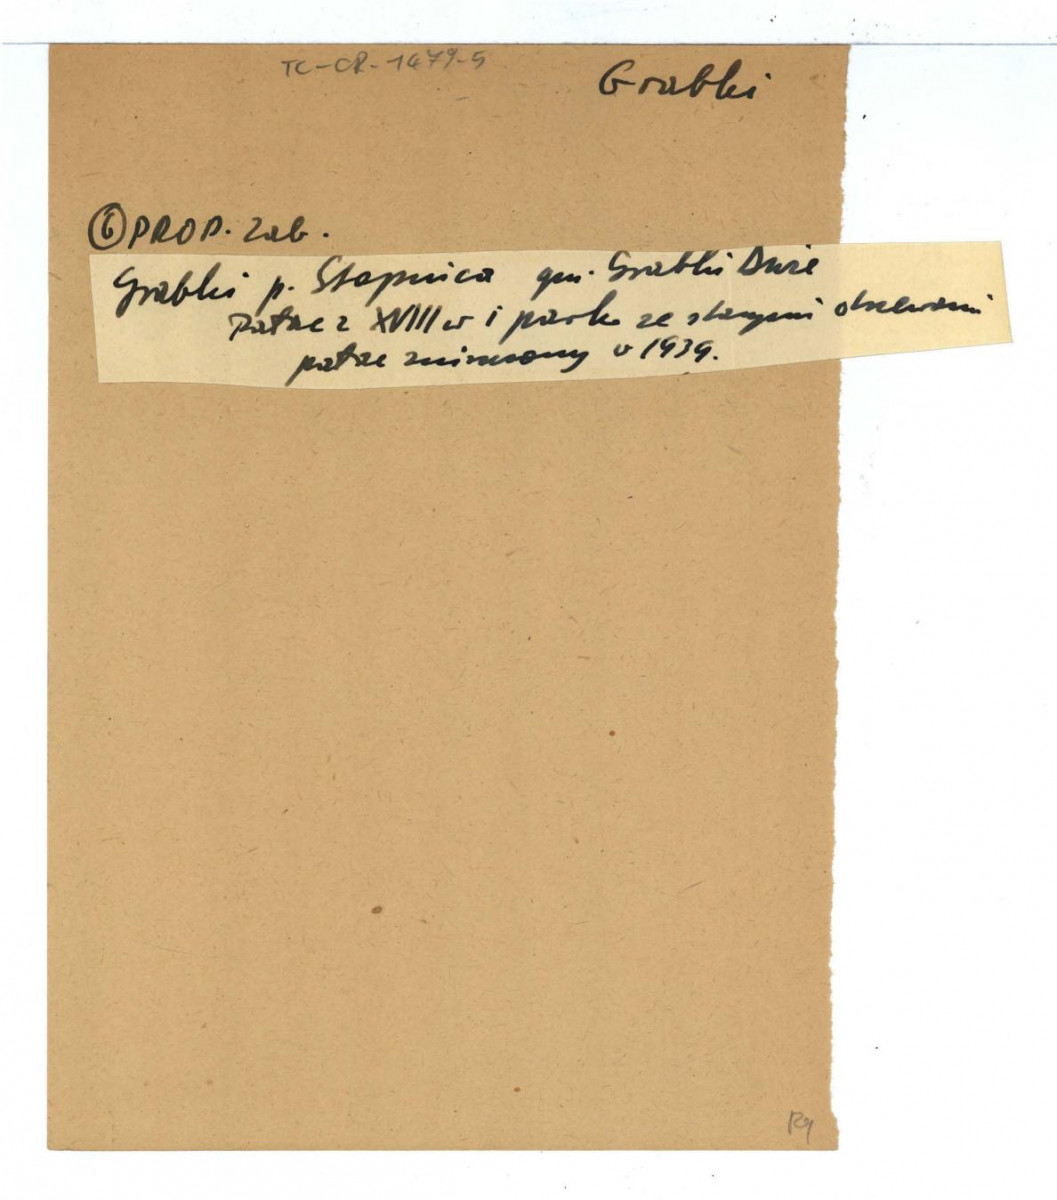 TC-CR-1479-5
Grabki
6 PROP. Zab.
Grabki p. Stopnica gm. Grabki Duże
Pałac z XVIII w i park ze starymi drzewami
pałac zniszczony w 1939.